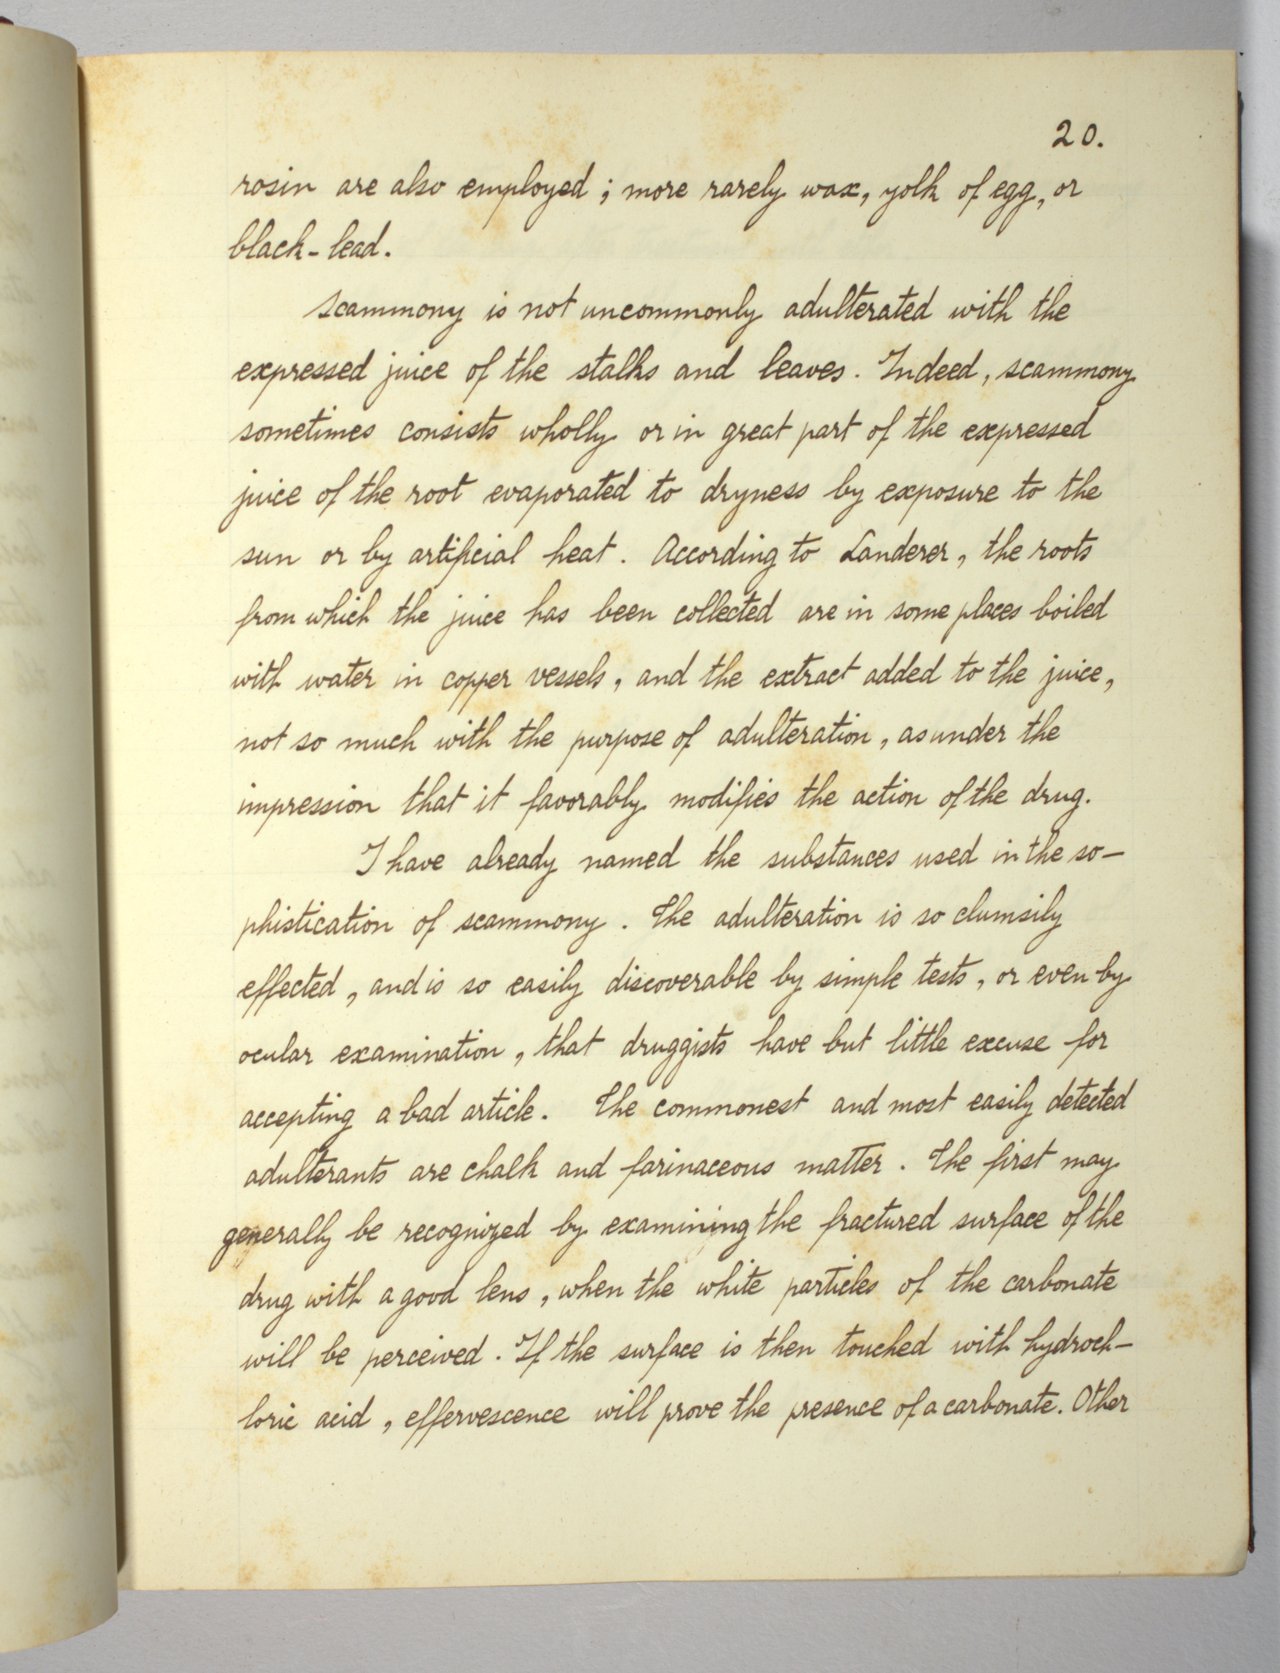 20.
rosin are also employed; more rarely wax, yolk of egg, or
black-lead.
Scammony is not uncommonly adulterated with the
expressed juice of the stalks and leaves. Indeed, scammony
sometimes consists wholly or in great part of the expressed
juice of the root evaporated to dryness by exposure to the
sun or by artificial heat. According to Landerer, the roots
from which the juice has been collected are in some places boiled
with water in copper vessels, and the extract added to the juice,
not so much with the purpose of adulteration, as under the
impression that it favorably modifies the action of the drug.
I have already named the substances used in the so-
phistication of scammony. The adulteration is so clumsily
effected, and is so easily discoverable by simple tests, or even by
ocular examination, that druggists have but little excuse for
accepting a bad article. The commonest and most easily detected
adulterants are chalk and farinaceous matter. The first may
generally be recognized by examining the fractured surface of the
drug with a good lens, when the white particles of the carbonate
will be perceived. If the surface is then touched with hydroch-
loric acid, effervescence will prove the presence of a carbonate. Other